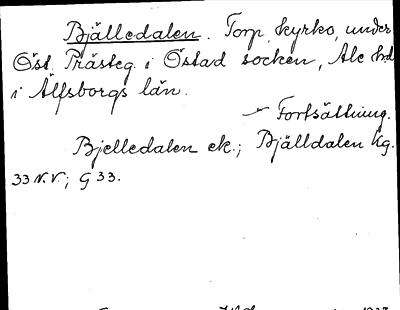 Bjälledalen. Torp, kyrko, under
Öst. Prästeg. i Östad socken, Ale hd
i Älfsborgs län.
Fortsättning.
Bjelledalen ek.; Bjälldalen Kg.
33 N.V.; G 33.